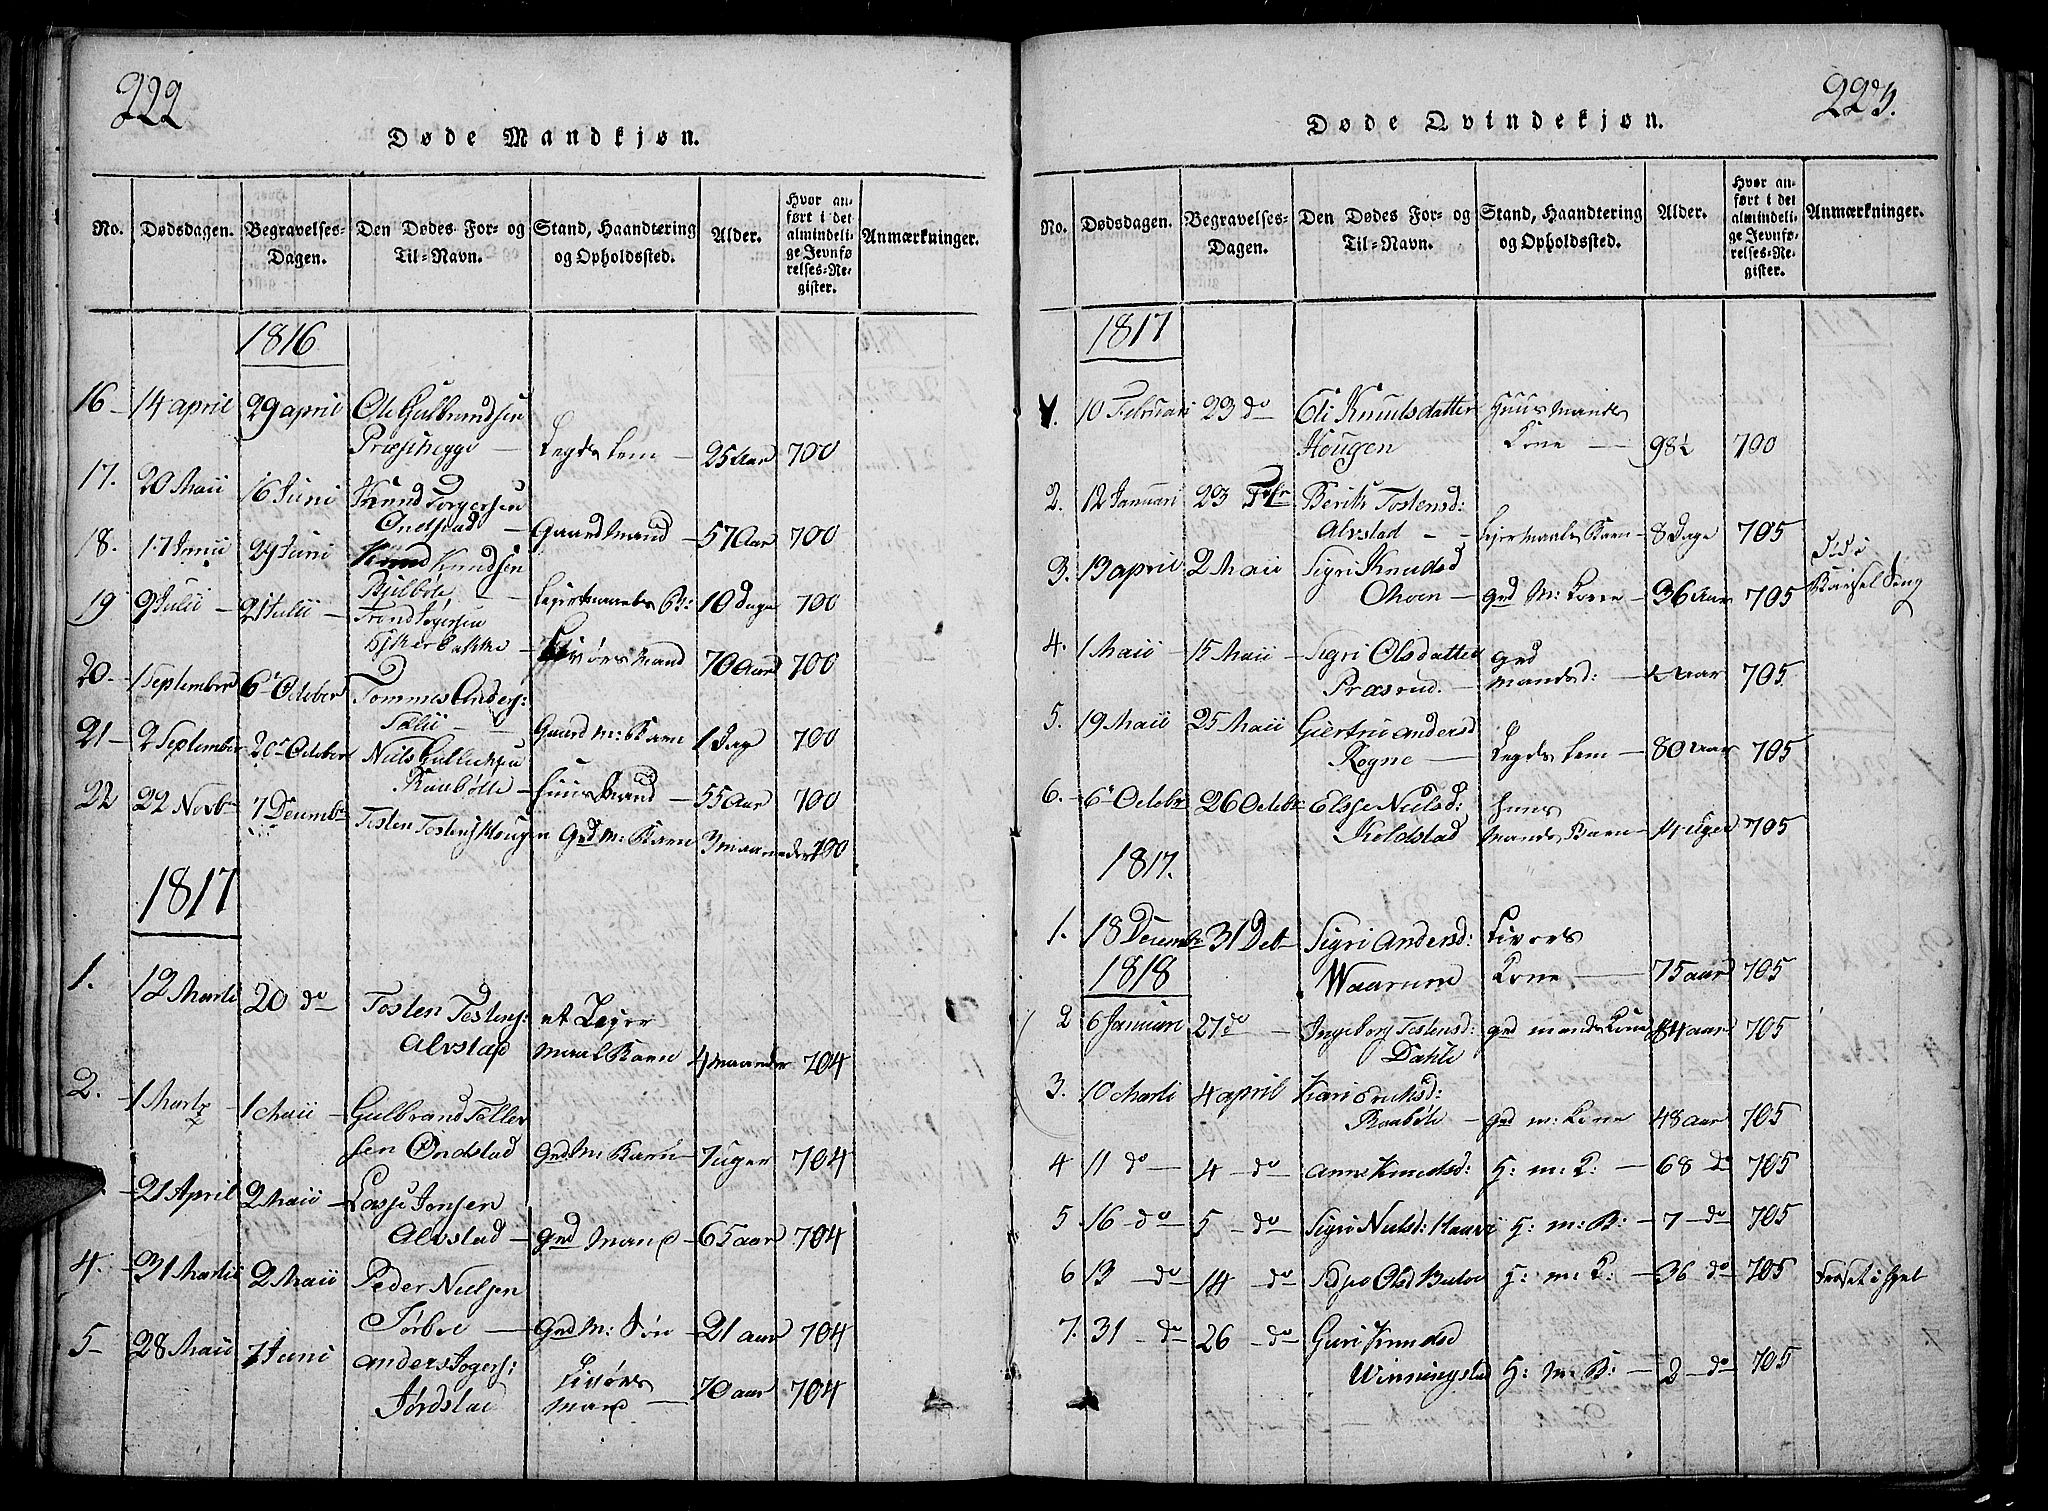 222
Døde Mandkjøn.
No. Dødsdagen. Begravelses-Dagen. Den Dødes For- og Til-Navn. Stand, Haandtering og Opholdssted. Alder. Hvor anført i det almindelige Jevnførelses-Register. Anmærkninger.
1816
16 14 april 29 april Ole Gulbrandsen
Præsthegge Legds lem 25 Aar 700
17. 20 Maii 16 Junii Knud Torgersen
Ondstad Gaard Mand 57 Aar 700
18. 17 Junii 29 Juni Knud Knudsen
Bjelbøle Lejermaals B: 10 Dage 700
19 9 Julii 21 Julii Trond
Livørs Mand 70 Aar 700
20 1 September 6 October Tommes Anders:
Gaard M: Barn 1 Dag 700
21 2 September 20 October Niels
Raabølle Huus Mand 55 Aar 700
22 22 Novb 7 Decembr Tosten Tostens Hougen Grd M: Barn 3 maaneder 700
1817
1. 12 Marti 20 do Tosten Tostens:
Alvstad et Lejer
maals Barn 4 maaneder 704
2. 1 Marti 1 Maii Gulbrand Toller
sen Ondstad Grd M: Barn 7 uger 704
21 April 2 Maii Lasse Jonsen
Alvstad Grd Mand 65 aar 704
4. 31 Martii 2 Maii Peder Nielsen
Grd M: Søn 21 aar 704
5 28 Maii 7 Juni anders
Jørdstad Livørs
Mand 70 aar 704
223.
Døde Qvindekjøn.
No. Dødsdagen. Begravelses-Dagen. Den Dødes For- og Til-Navn. Stand, Haandtering og Opholdssted. Alder. Hvor anført i det almindelige Jevnførelses-Register. Anmærkninger.
1817
1. 10 Februari 23 do Eli Knudsdatter Huus Mands
Hougen Kone 98½ 700
2. 12 Januari 23 Febr Berith Tostensd:
Alvstad Lejermaals Barn 8 Dage 705
3. 13 april 2 Maii Sigri Knudsd
Grd M: Kone 36 Aar 705 Døde i Barsel Seng
4. 1 Maii 15 Maii Sigri Olsdatter Grd
Præsrud Mandsd: Aar 705
5. 19 Maii 25 Maii Giertru Andersd
Rogne Legds lem 80 Aar 705
6. 6 Octobr 26 Octobr Elsse Nielsd:
Koldstad Huus
Mands Barn 14 uger 705
1817.
1. 18 Decembr 31 Debr Sigri Andersd: Livørs
Waarum Kone 75 aar 705
1818
2 6 Januari 27 do Ingeborg Tostensd: Grd mands Kone 84 aar 705
Dahle
3. 10 Marti 4 april Kari Erichsd:
Raabøle Grd m: Kone 48 aar 705
4 11 do 4 do Anne Knudsd: G: m: K: 68 do 705
5 16 do 5 do Sigri Nielsd: G: m: B: 7 do 705
6 13 do 14 do Olsd G: m: K: 36 do 705
7. 31 do 26 do Guri Knudsd
Winningstad G: m: B: 2 do 705